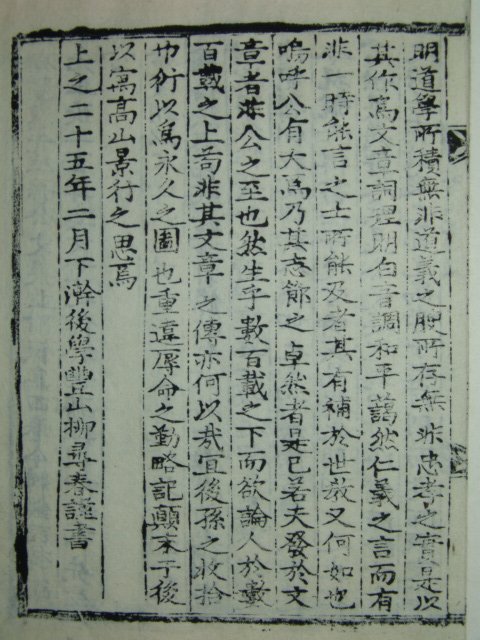 明道學所積無非道義之腴所存無非忠孝之實是以
其作爲文章詞理明白音調和平藹然仁義之言而有
非一時能言之士所能及者其有補於世敎又何如也
嗚呼公有大焉乃其志節之卓然者是已若夫發於文
章者非公之至也然生乎數百載之下而欲論人於數
百載之上苟非其文章之傳亦何以哉宜後孫之收拾
巾衍以爲永久之圖也重違辱命之勤略記顛末于後
以寓高山景行之思焉
上之二十五年二月下澣後學豐山柳尋春謹書